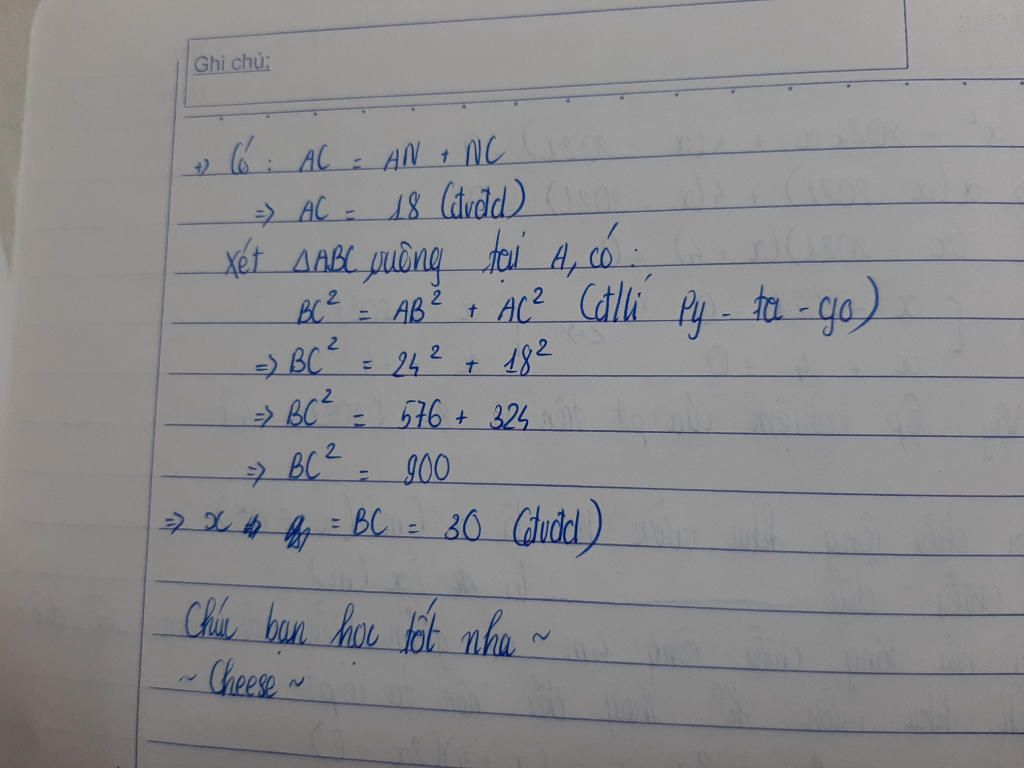 Ghi chú:
+) Có : AC = AN + NC
=> AC = 18 (đvđd)
Xét ΔABC vuông tại A, có :
BC² = AB² + AC² (đ/lí Py - ta - go)
=> BC² = 24² + 18²
=> BC² = 576 + 324
=> BC² = 900
=> x = BC = 30 (đvđd)
Chúc bạn học tốt nha ~
~ Cheese ~